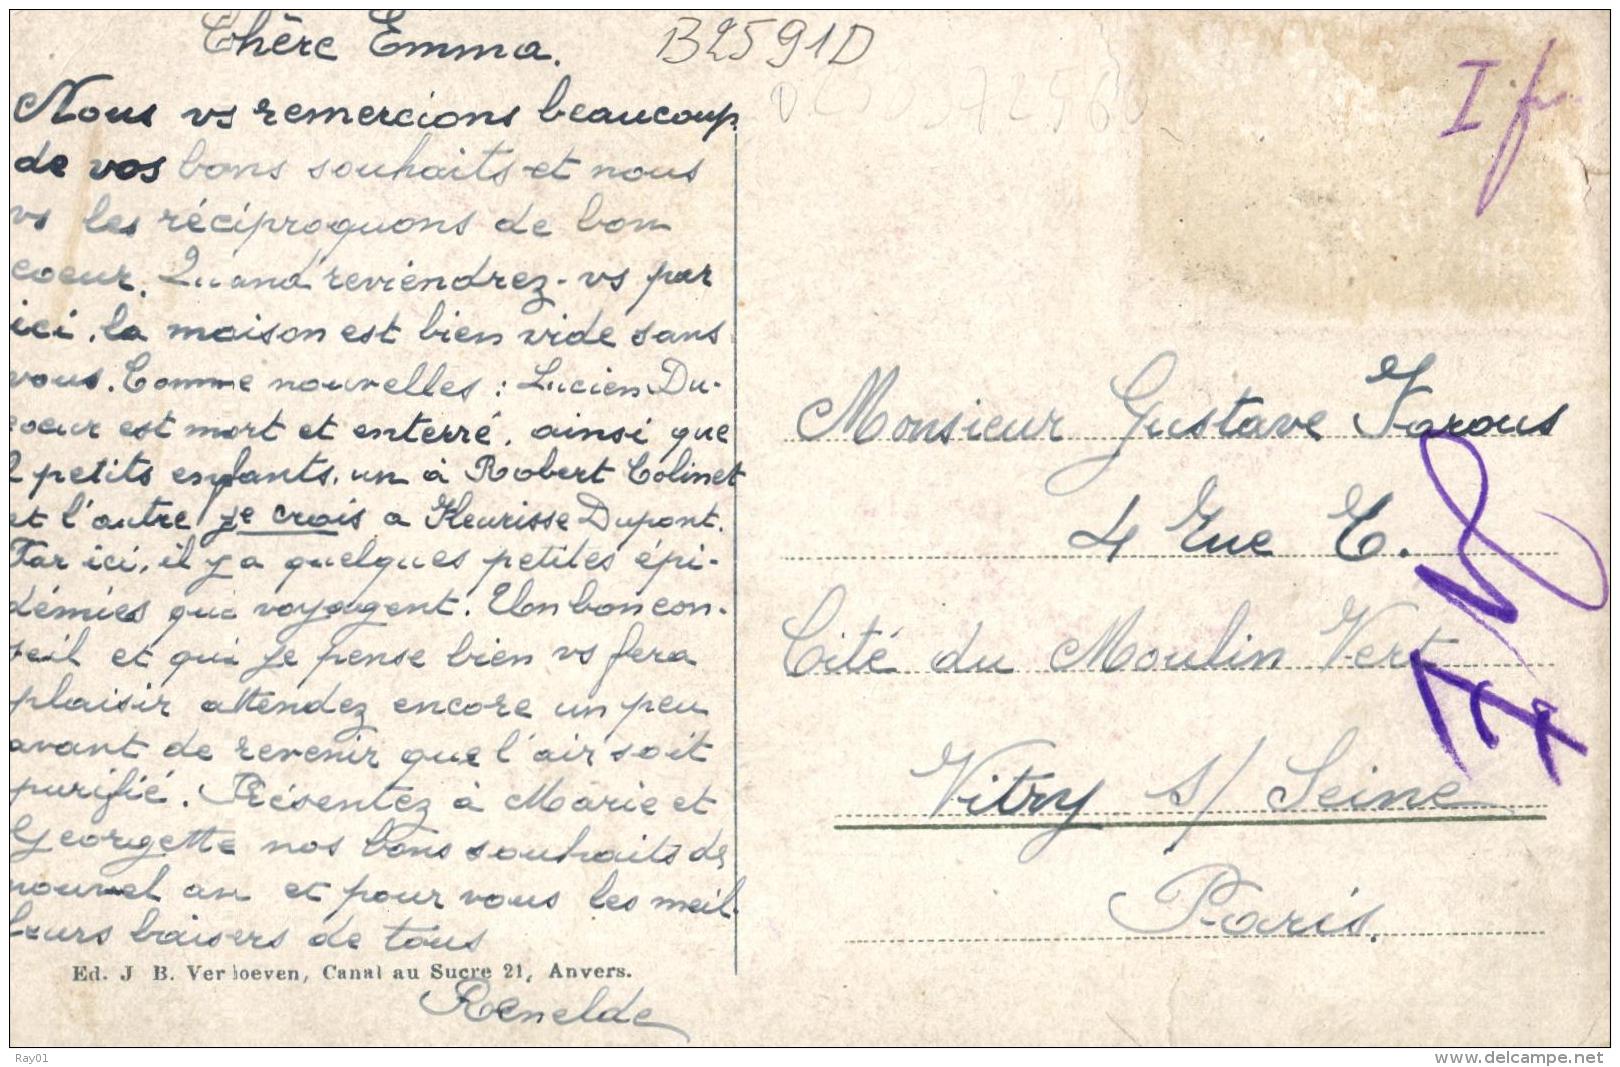 Chère Emma.
B2591D
Nous vs remercions beaucoup
de vos bons souhaits et nous
vs les réciproquons de bon
coeur. Quand reviendrez-vs par
ici, la maison est bien vide sans
vous. Comme nouvelles : Lucien Du-
coeur est mort et enterré, ainsi que
2 petits enfants, un à Robert Colinet
et l'autre je crois a Fleurisse Dupont.
Par ici, il y a quelques petites épi-
démies qui voyagent. Un bon con-
seil et qui je pense bien vs fera
plaisir attendez encore un peu
avant de revenir que l'air soit
purifié. Présentez à Marie et
Georgette nos bons souhaits de
nouvel an et pour vous les meil-
leurs baisers de tous
Ed. J B. Verhoeven, Canal au Sucre 21, Anvers.
Renelde
I fr
Monsieur Gustave Farous
4 Rue E.
Cité du Moulin Vert
Vitry s/ Seine
Paris.
Ray01
www.delcampe.net